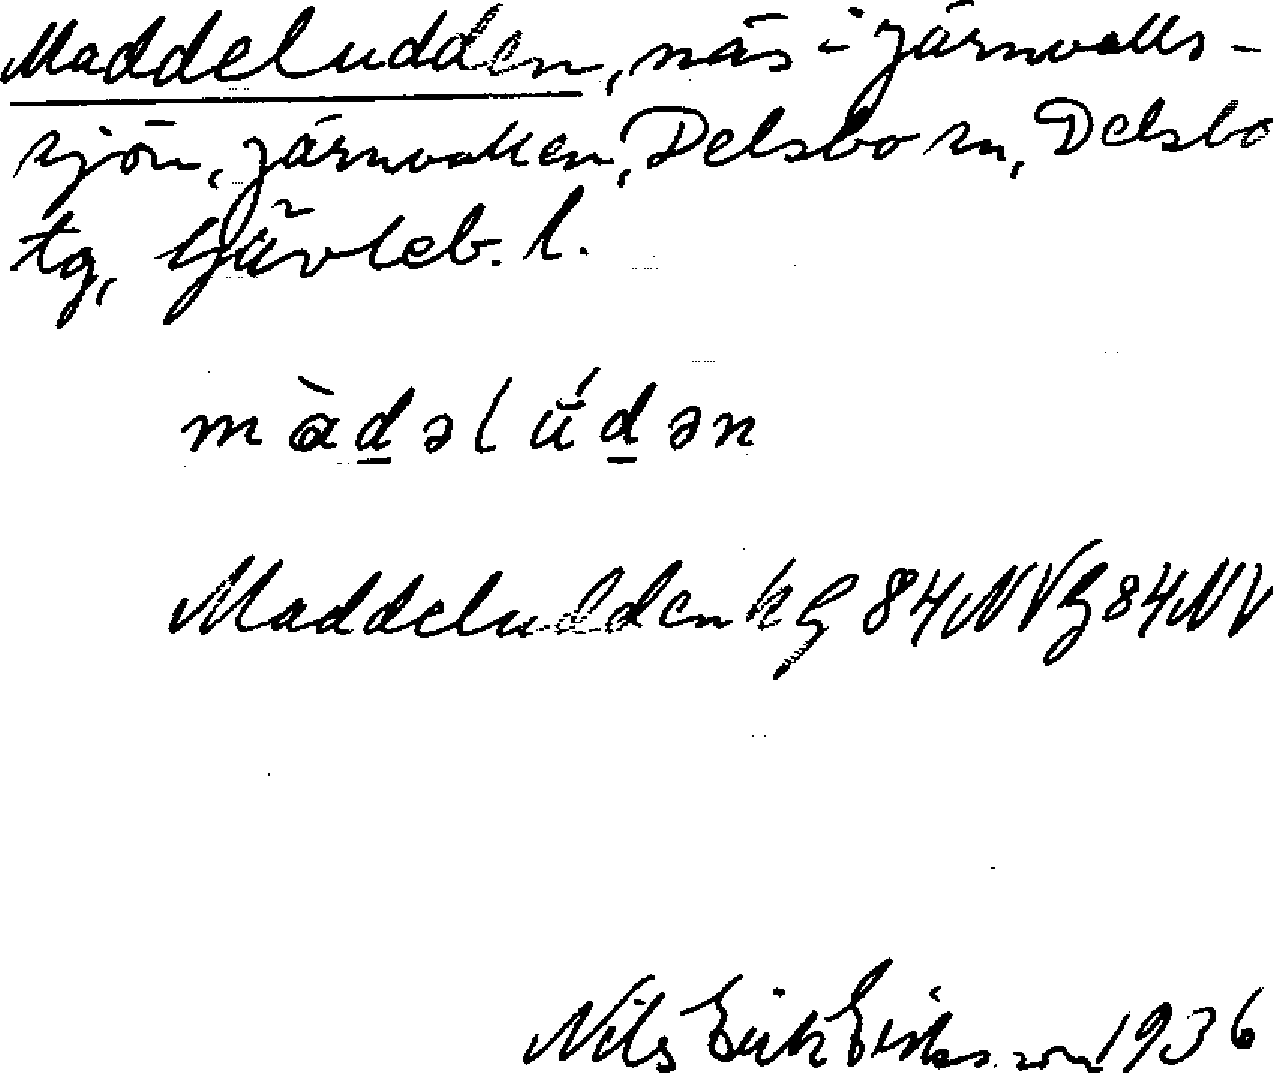 Maddeludden, näs i Järnvalls-
sjön, Järnvallen, Delsbo sn, Delsbo
tg, Gävleb. l.
màdəlú̆dən
Maddeludden kg 84NV g 84NV
Nils Erik Eriksson 1936